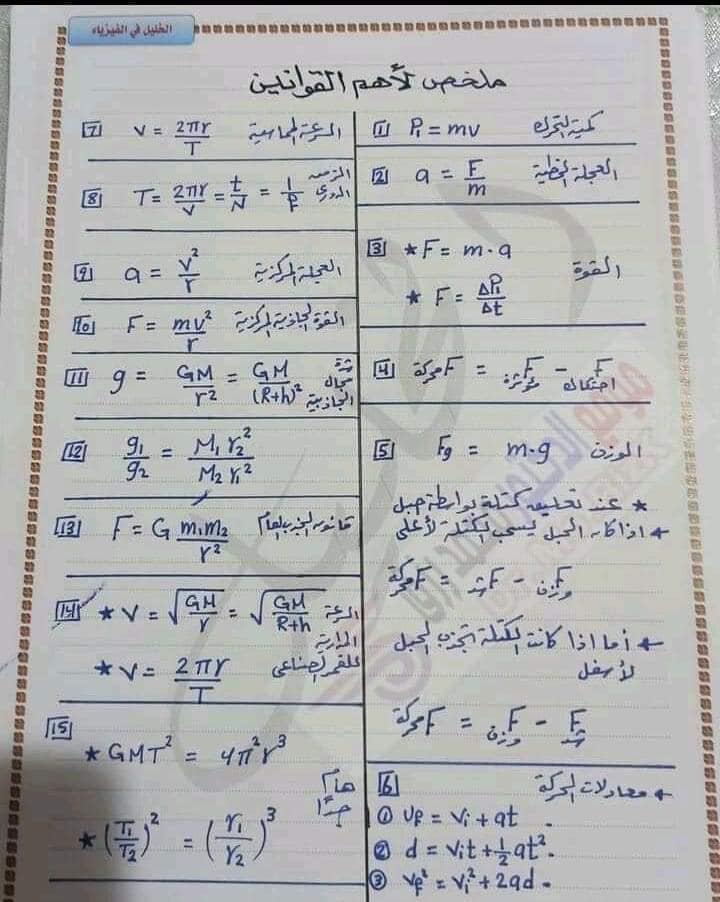 الخليل في الفيزياء
ملخص لأهم القوانين
[1] P₁ = mv كمية التحرك
[2] a = F/m العجلة الخطية
[3] * F = m·a القوة
* F = ΔP₁/Δt
[4] F محركة = F مؤثرة - F احتكاك
[5] Fg = m·g الوزن
* عند تعليق كتلة بواسطة حبل
* اذا كان الحبل يسحب الكتلة لأعلى
F محركة = F شد - F وزن
* أما اذا كانت الكتلة تجذب الحبل
لأسفل
F محركة = F وزن - F شد
[6] * معادلات الحركة
① Vf = Vi + at
② d = Vit + ½at².
③ Vf² = Vi² + 2ad
[7] V = 2πr/T السرعة المماسية
[8] T = 2πr/V = t/N = 1/F الزمن الدوري
[9] a = V²/r العجلة المركزية
[10] F = mv²/r القوة الجاذبة المركزية
[11] g = GM/r² = GM/(R+h)² شدة مجال الجاذبية
[12] g₁/g₂ = M₁ r₂²/M₂ r₁²
[13] F = G m₁m₂/r² قانون الجذب العام
[14] * V = √(GM/r) = √(GM/R+h) السرعة المدارية
* V = 2πr/T للقمر الصناعي
[15] * GMT² = 4π²r³
هام جدًا
* (T₁/T₂)² = (r₁/r₂)³